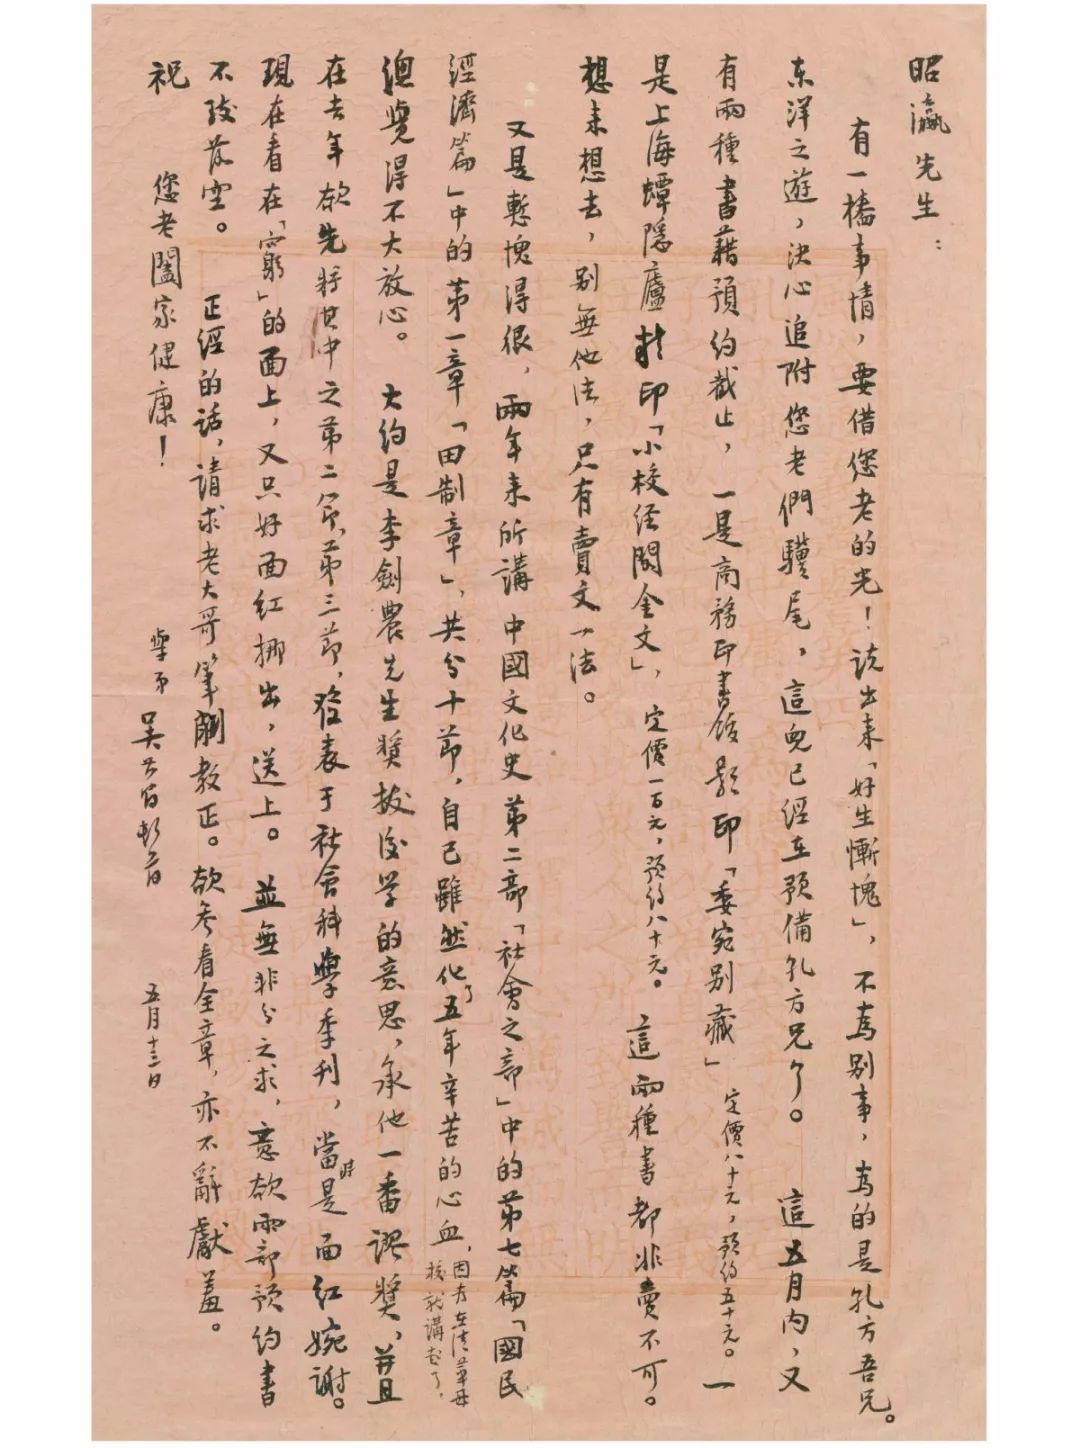 昭瀛先生：
有一樁事情，要借您老的光！説出来「好生慚愧」，不為别事，為的是孔方吾兄。
东洋之遊，決心追附您老們驥尾，這兜已經在預備孔方兄了。 這五月内，又
有兩種書藉預約截止，一是商務印書館影印「委宛别藏」 定價八十元，預約五十元。一
是上海蟫隱廬 印「小校经閣金文」，定價一百元，预约八十元。 這兩種書都非賣不可。
想来想去，别無他法，只有賣文一法。
又是慙愧得很，兩年来所講中國文化史第二部「社會之部」中的第七篇「國民
經濟篇」中的第一章「田制章」，共分十節，自己雖然化了五年辛苦的心血，因为在清華母校就講起了，
總覺得不大放心。 大約是李劍農先生奬拔後学的意思，承他一番謬奬，并且
在去年欲先將其中之第二節、第三節，發表于社會科學季刊，當時是面红婉謝。
現在看在「窮」的面上，又只好面红挪出，送上。 並無非分之求，意欲兩部预约書
不致落空。 正經的话，請求老大哥筆削教正。欲参看全章，亦不辭獻羞。
祝
您老闔家健康！
學弟 吴 頓首
五月十三日